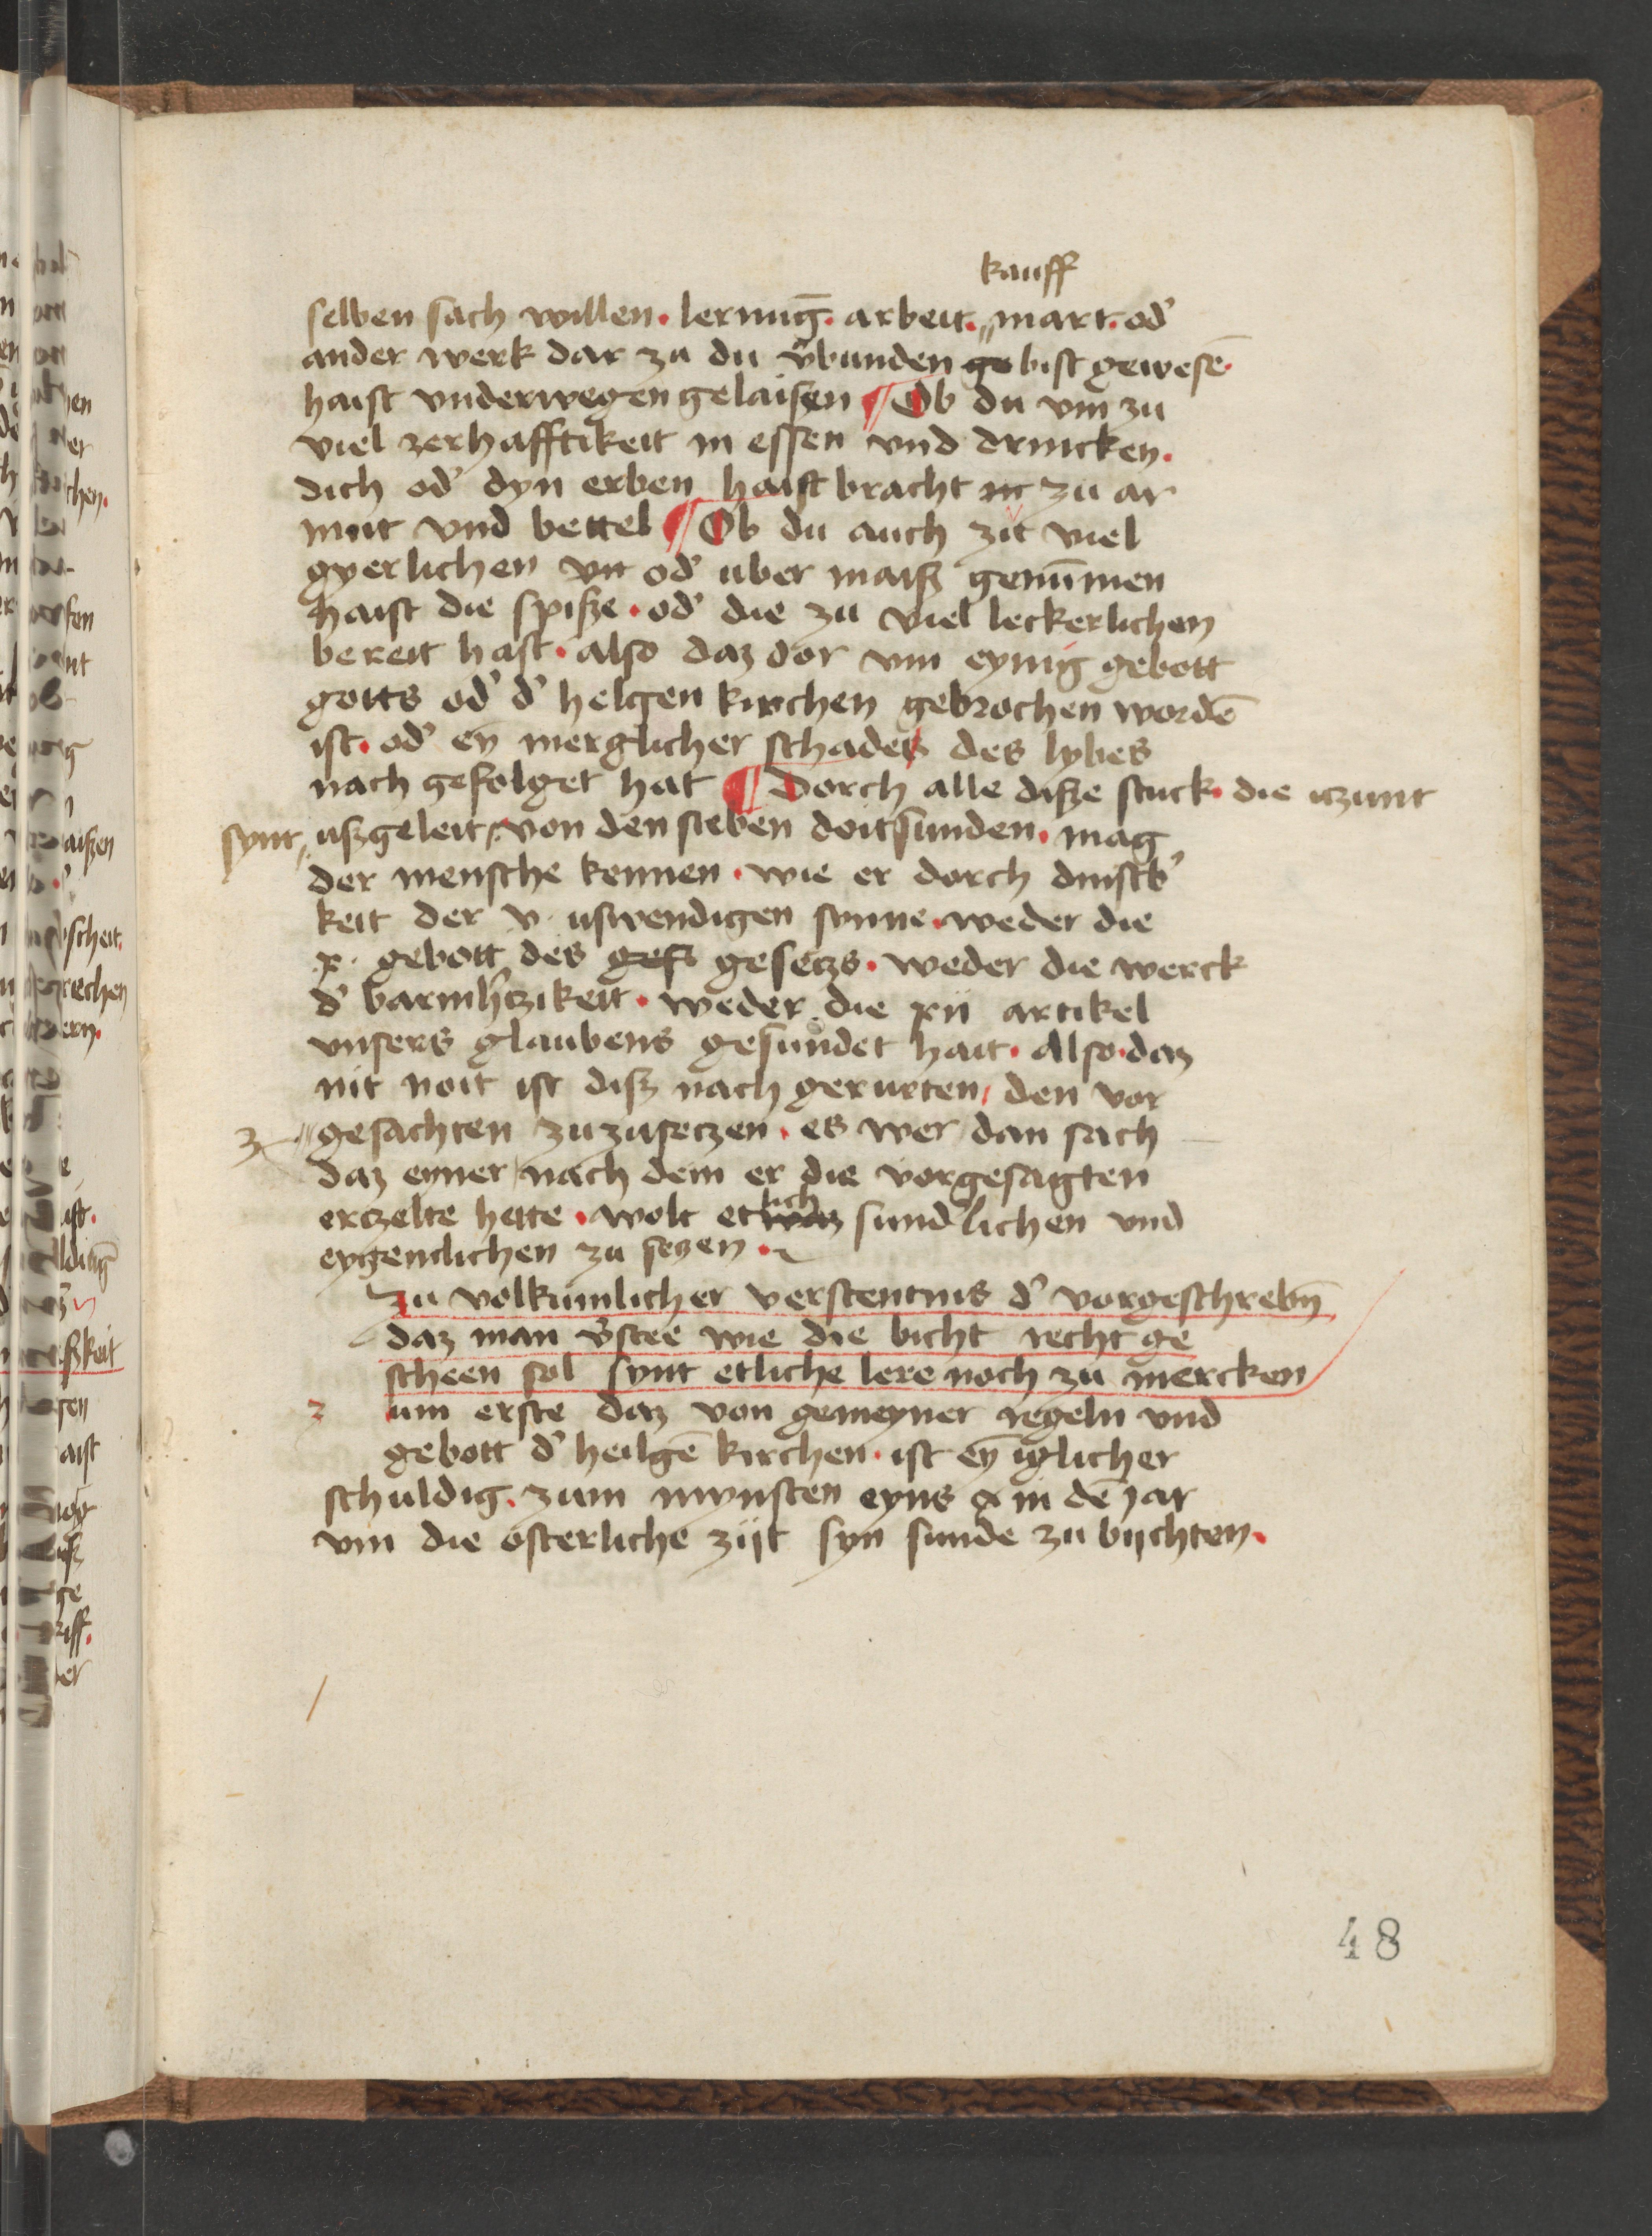 kauff
selben sach willen. lernūg. arbeit. mart. od'
ander werk dar zu du v̄bunden ge bist gewesē.
haist vnderwegen gelaisen ¶ Ob du vm zu
viel zerhafftikeit in essen vnd drincken.
dich od' dyn erben haist bracht in zu ar
mut vnd bettel ¶ Ob du auch zu viel
gyerlichen vn od' uber maiß genūmen
haist die spiße. od' die zu viel leckerlichen
bereit hast. also daz dor vm eynig gebott
gotts od' d' helgen kirchen gebrochen wordē
ist. od' eȳ merglicher schade des lybes
nach gefolget hat ¶ Dorch alle diße stuck. die iczunt
synt ußgeleit von den sieben doitsunden. mag
der mensche kennen. wie er dorch dinstb'
keit der v. uswendigen synne. weder die
.x. gebott des gese gesetzs. weder die werck
d' barmh'tzikeit. weder die xii artikel
vnsers glaubens gesundet hait. Also. daz
nit noit ist diß nach gerurten, den vor
gesachten zuzusetzen. es wer dan sach
daz eyner nach dem er die vorgesagten
erczelte hette. wolt etwaz lich sundlichen vnd
eygentlichen zu setzen.
Zu volkumlicher verstentnis d' vorgeschrebn̄
daz man v̄stee wie die bicht recht ge
scheen sol synt etliche lere noch zu mercken
z um erste daz von gemeyner regeln vnd
gebott d' heilgē kirchen. ist eȳ iglicher
schuldig. zum mynsten eyns in dē jar
vm die osterliche zijt syn sunde zu bijchten.
48